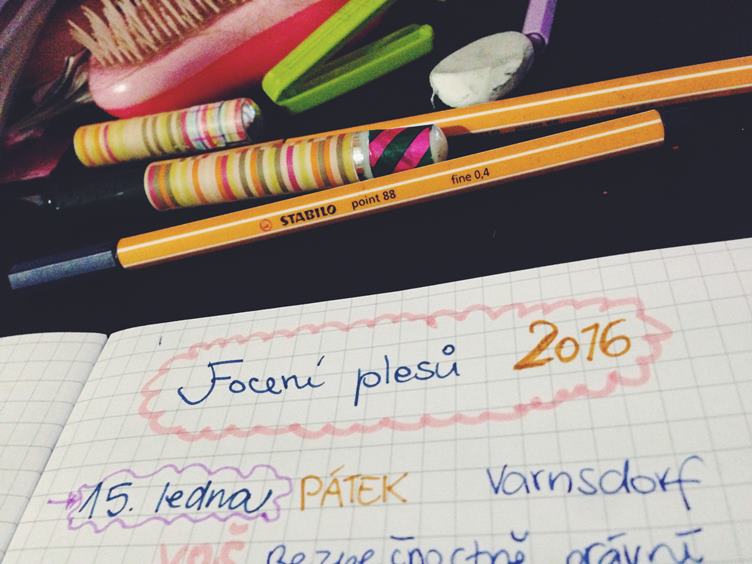 STABILO point 88 fine 0,4
Focení plesů 2016
15. ledna PÁTEK Varnsdorf
VOŠ Bezpečnostně právní